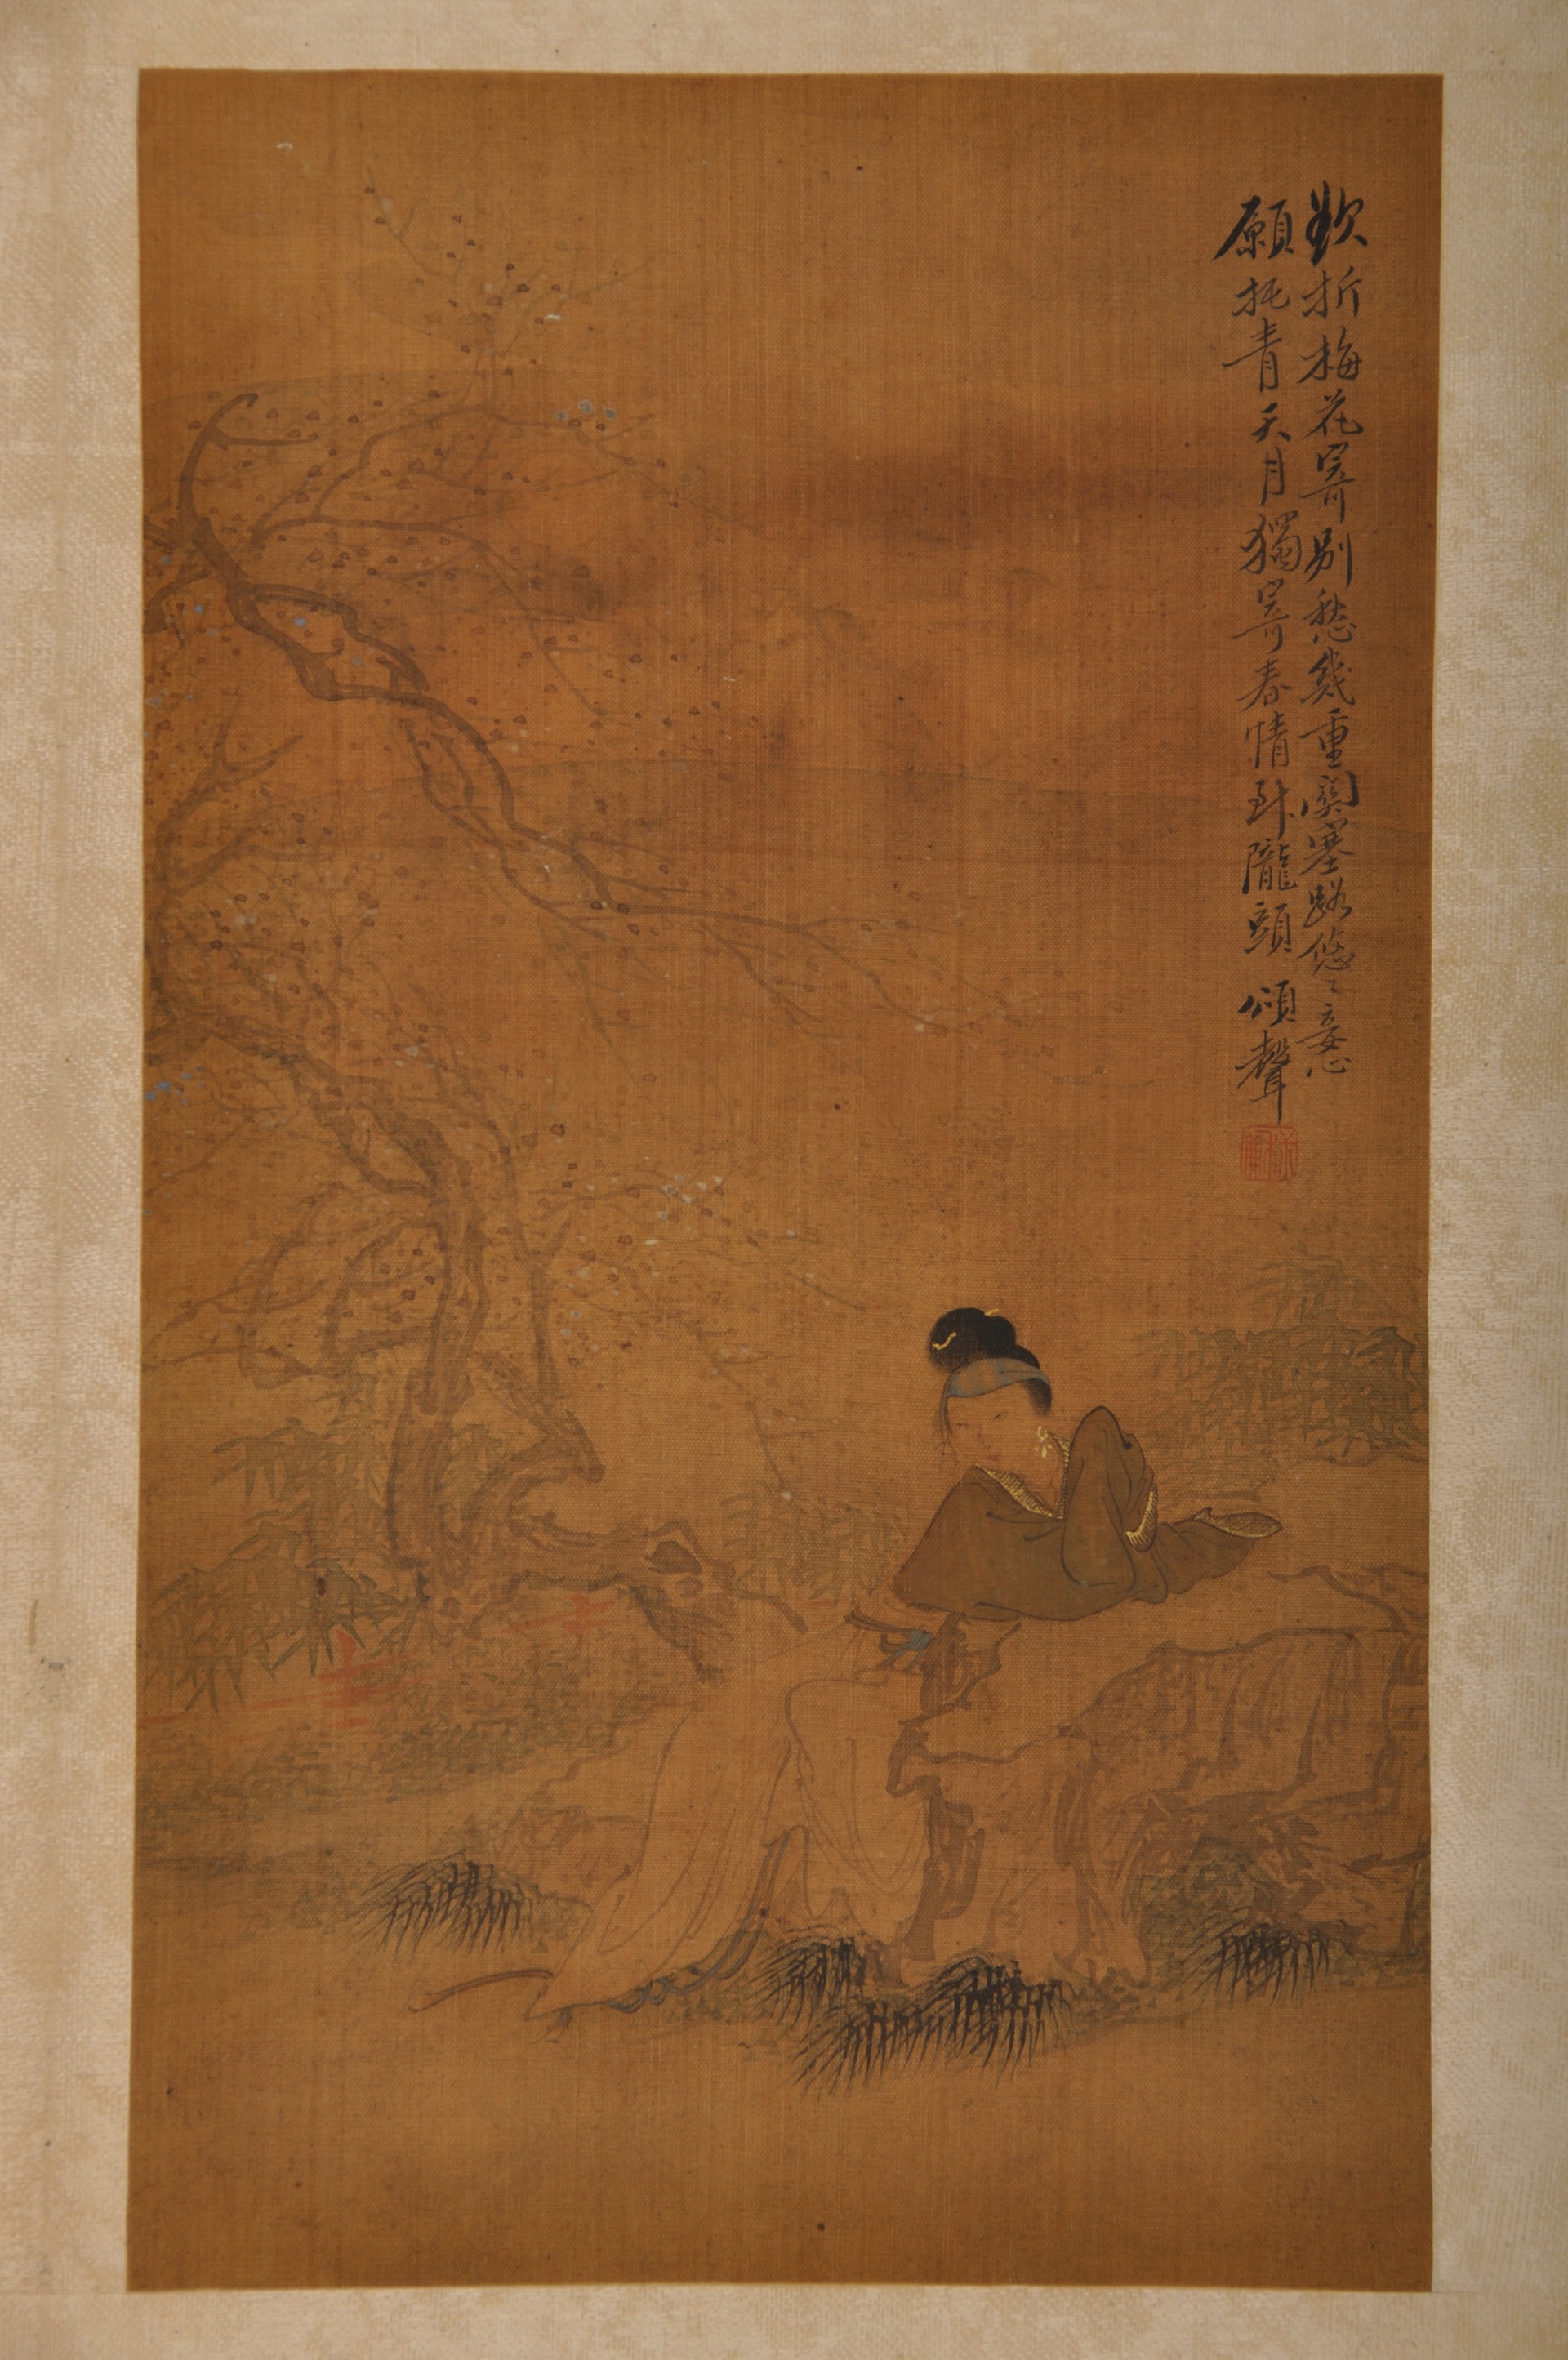 欵折梅花寄别愁幾重關塞路悠〻妾心
願托青天月獨寄春情到隴頭 頌聲